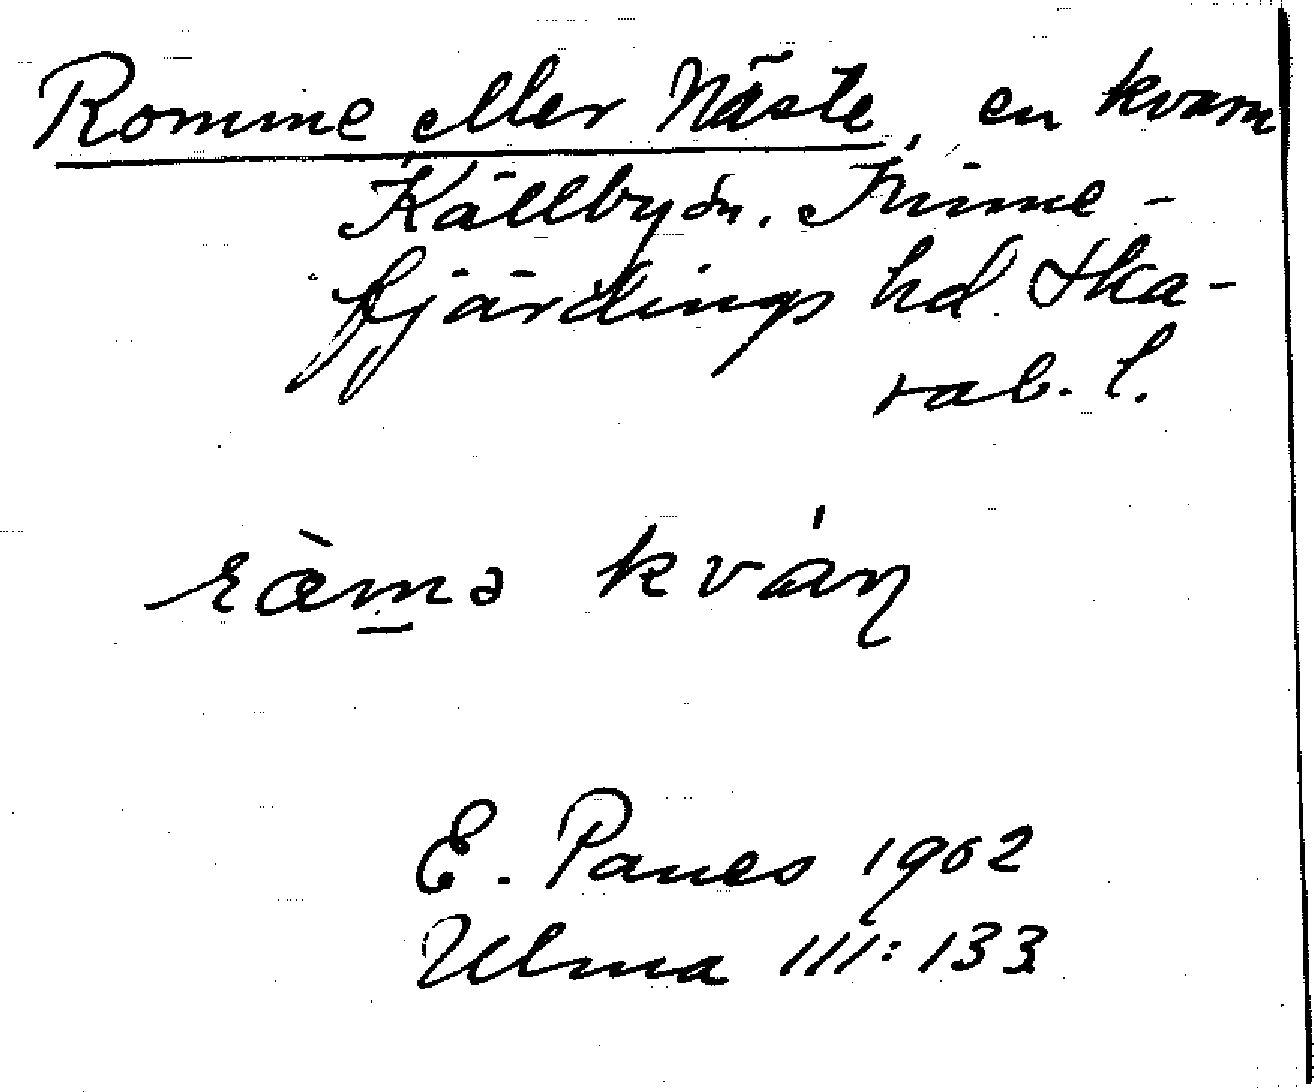 Romme eller Näste, en kvarn
Källby sn. Kinne-
fjärdings hd. Ska-
rab. l.
ràmə kván
E. Panes 1902
Ulma III: 133